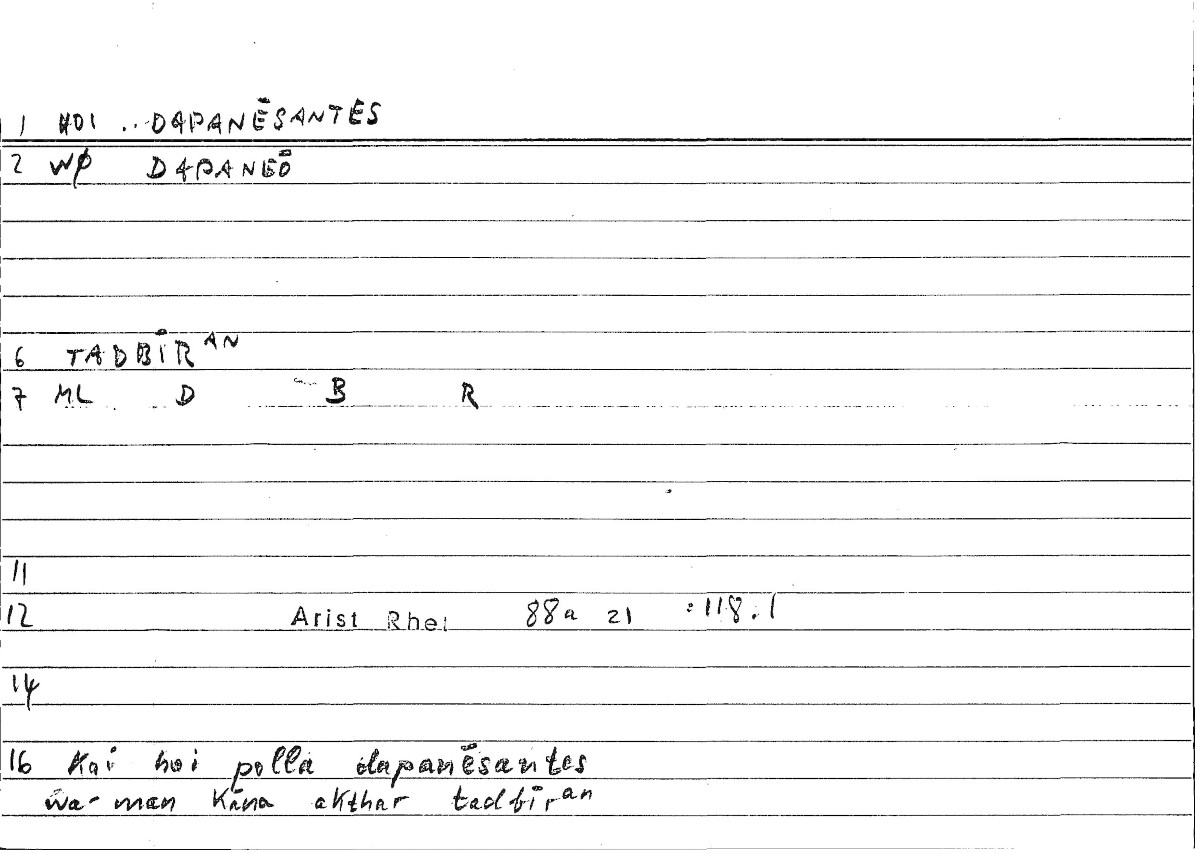 1 HOI ... DAPANĒSANTES
2 WØ DAPANEŌ
6 TADBĪR AN
7 ML D B R
11
12 Arist Rhet 88a 21 :118.1
14
16 Kai hoi polla dapanēsantes
wa-man kāna akthar tadbīr an